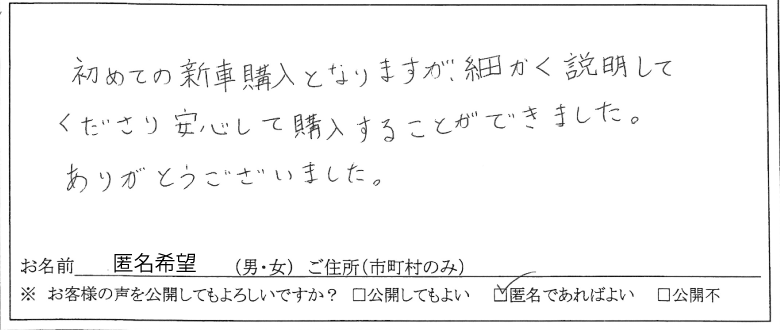 初めての新車購入となりますが、細かく説明して
くださり安心して購入することができました。
ありがとうございました。
お名前 匿名希望 （男・女） ご住所（市町村のみ）
※ お客様の声を公開してもよろしいですか？ □公開してもよい ☑匿名であればよい □公開不